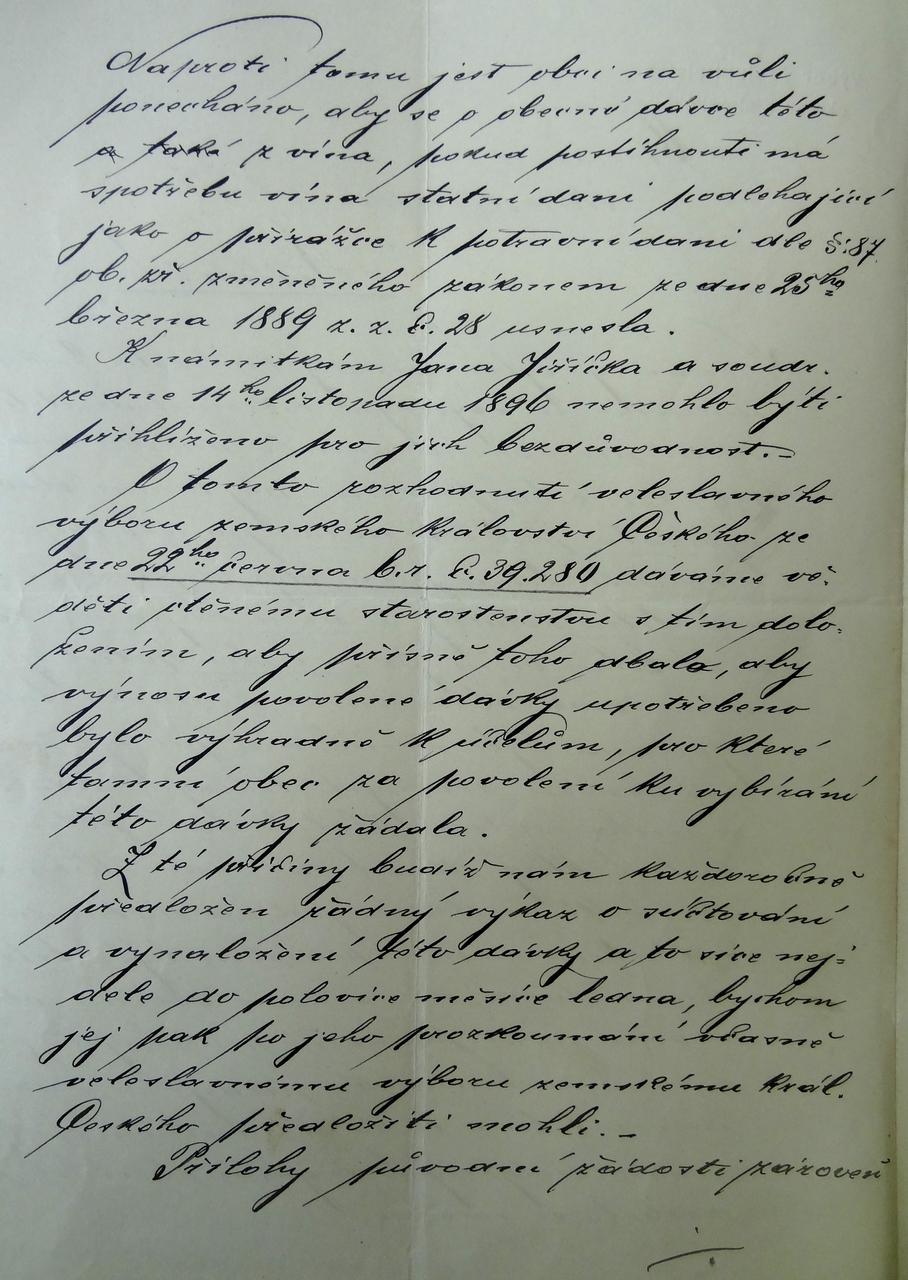 Naproti tomu jest obci na vůli
ponecháno, aby se o obecné dávce této
a také z vína, pokud postihnouti má
spotřebu vína statní dani podlehající
jako o přirážce k potravní dani dle §: 87
ob. zř. změněného zákonem ze dne 25ho
března 1889 z. z. č. 28 usnesla.
K námitkám Jana Jiřička a soudr.
ze dne 14ho listopadu 1896 nemohlo býti
přihlíženo pro jich bezdůvodnost. –
O tomto rozhodnutí veleslavného
výboru zemského Království Českého ze
dne 22ho června b. r. č. 39.280 dáváme vě-
děti ctěnému starostenstvu s tím dolo-
žením, aby přísně toho dbalo, aby
výnosu povolené dávky upotřebeno
bylo výhradně k účelům, pro které
tamní obec za povolení ku vybírání
této dávky žádala.
Z té příčiny budiž nám každoročně
předložen řádný výkaz o súčtování
a vynaložení této dávky a to sice nej-
déle do polovice měsíce ledna, bychom
jej pak po jeho prozkoumání včasně
veleslavnému výboru zemskému Král.
Českého předložiti mohli. –
Přílohy původní žádosti zároveň